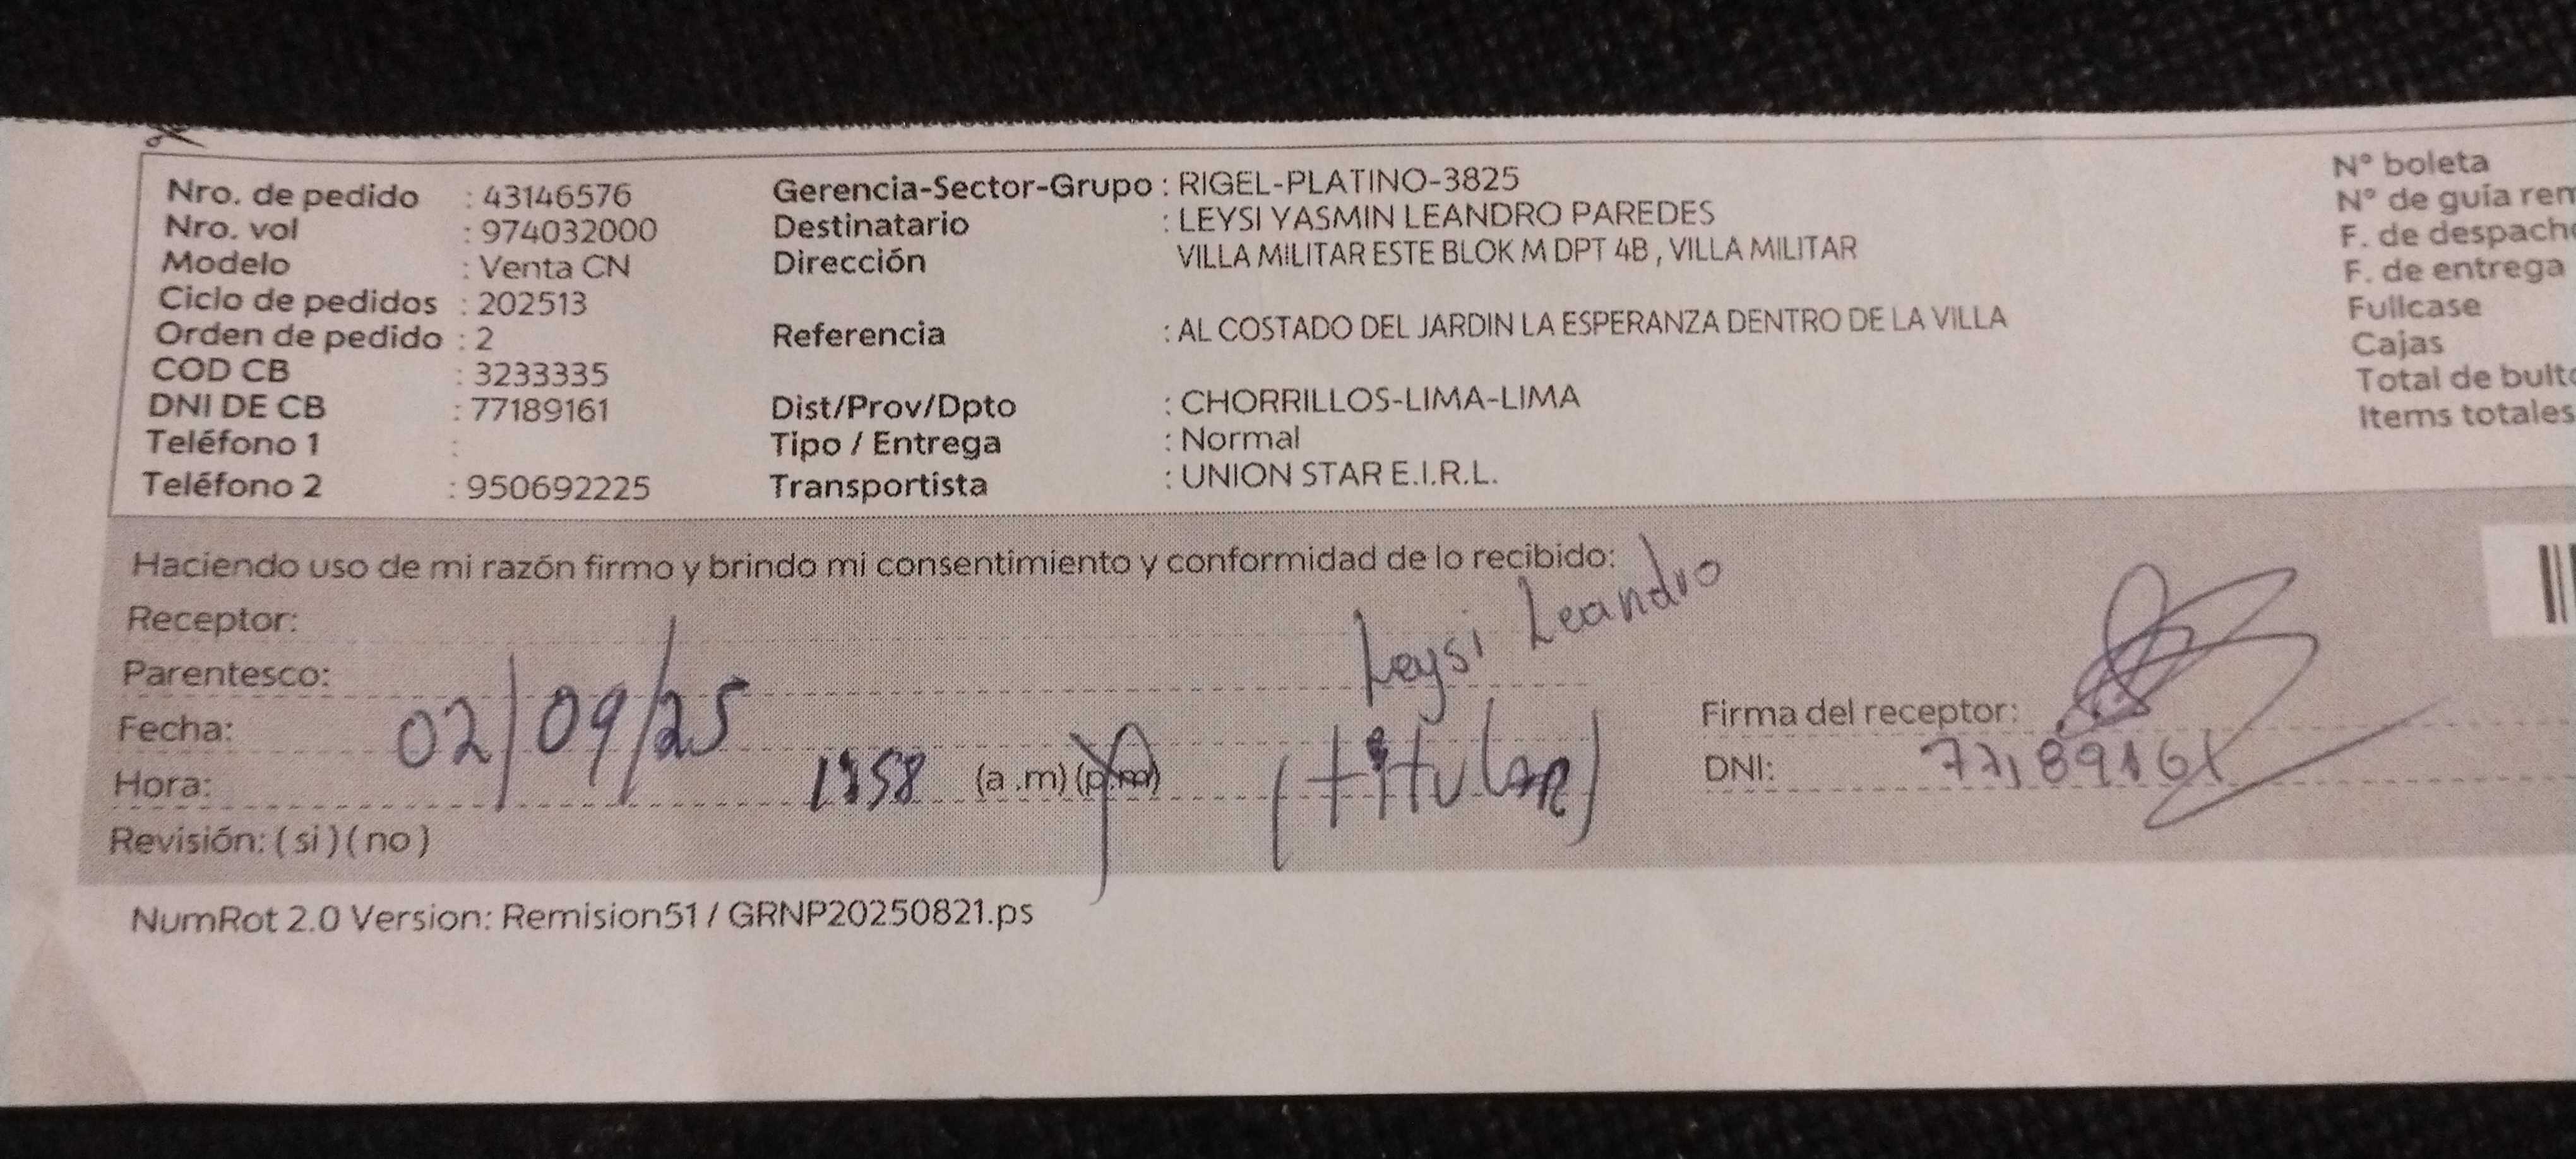 Nro. de pedido : 43146576
Nro. vol : 974032000
Modelo : Venta CN
Ciclo de pedidos : 202513
Orden de pedido : 2
COD CB : 3233335
DNI DE CB : 77189161
Teléfono 1 :
Teléfono 2 : 950692225
Gerencia-Sector-Grupo : RIGEL-PLATINO-3825
Destinatario : LEYSI YASMIN LEANDRO PAREDES
Dirección VILLA MILITAR ESTE BLOK M DPT 4B , VILLA MILITAR
Referencia : AL COSTADO DEL JARDIN LA ESPERANZA DENTRO DE LA VILLA
Dist/Prov/Dpto : CHORRILLOS-LIMA-LIMA
Tipo / Entrega : Normal
Transportista : UNION STAR E.I.R.L.
N° boleta
N° de guía rem
F. de despacho
F. de entrega
Fullcase
Cajas
Total de bulto
Items totales
Haciendo uso de mi razón firmo y brindo mi consentimiento y conformidad de lo recibido:
Receptor: Leysi Leandro
Parentesco: (titular)
Fecha: 02/09/25
Hora: (a .m) (p.m)
Revisión: ( si ) ( no )
Firma del receptor:
DNI: 77189161
NumRot 2.0 Version: Remision51 / GRNP20250821.ps